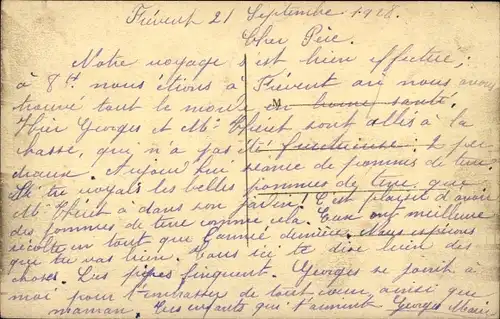 Frévent 21 Septembre 1928.
Cher Père.
Notre voyage s'est bien effectué;
à 8h. nous étions à Frévent où nous avons
trouvé tout le monde en bonne santé.
Hier Georges et Mr Théret sont allés à la
chasse, qui n'a pas été fructueuse: 2 per-
dreaux. Aujourd'hui séance de pommes de terre.
Si tu voyais les belles pommes de terre que
Mr Théret a dans son jardin! C'est plaisir d'avoir
des pommes de terre comme cela. Eux ont meilleure
récolte en tout que l'année dernière. Nous espérons
que tu vas bien. Tous ici te dise bien des
choses. Les pipes flinguent. Georges se joint à
moi pour t'embrasser de tout cœur, ainsi que
maman. Tes enfants qui t'aiment Georges Marie